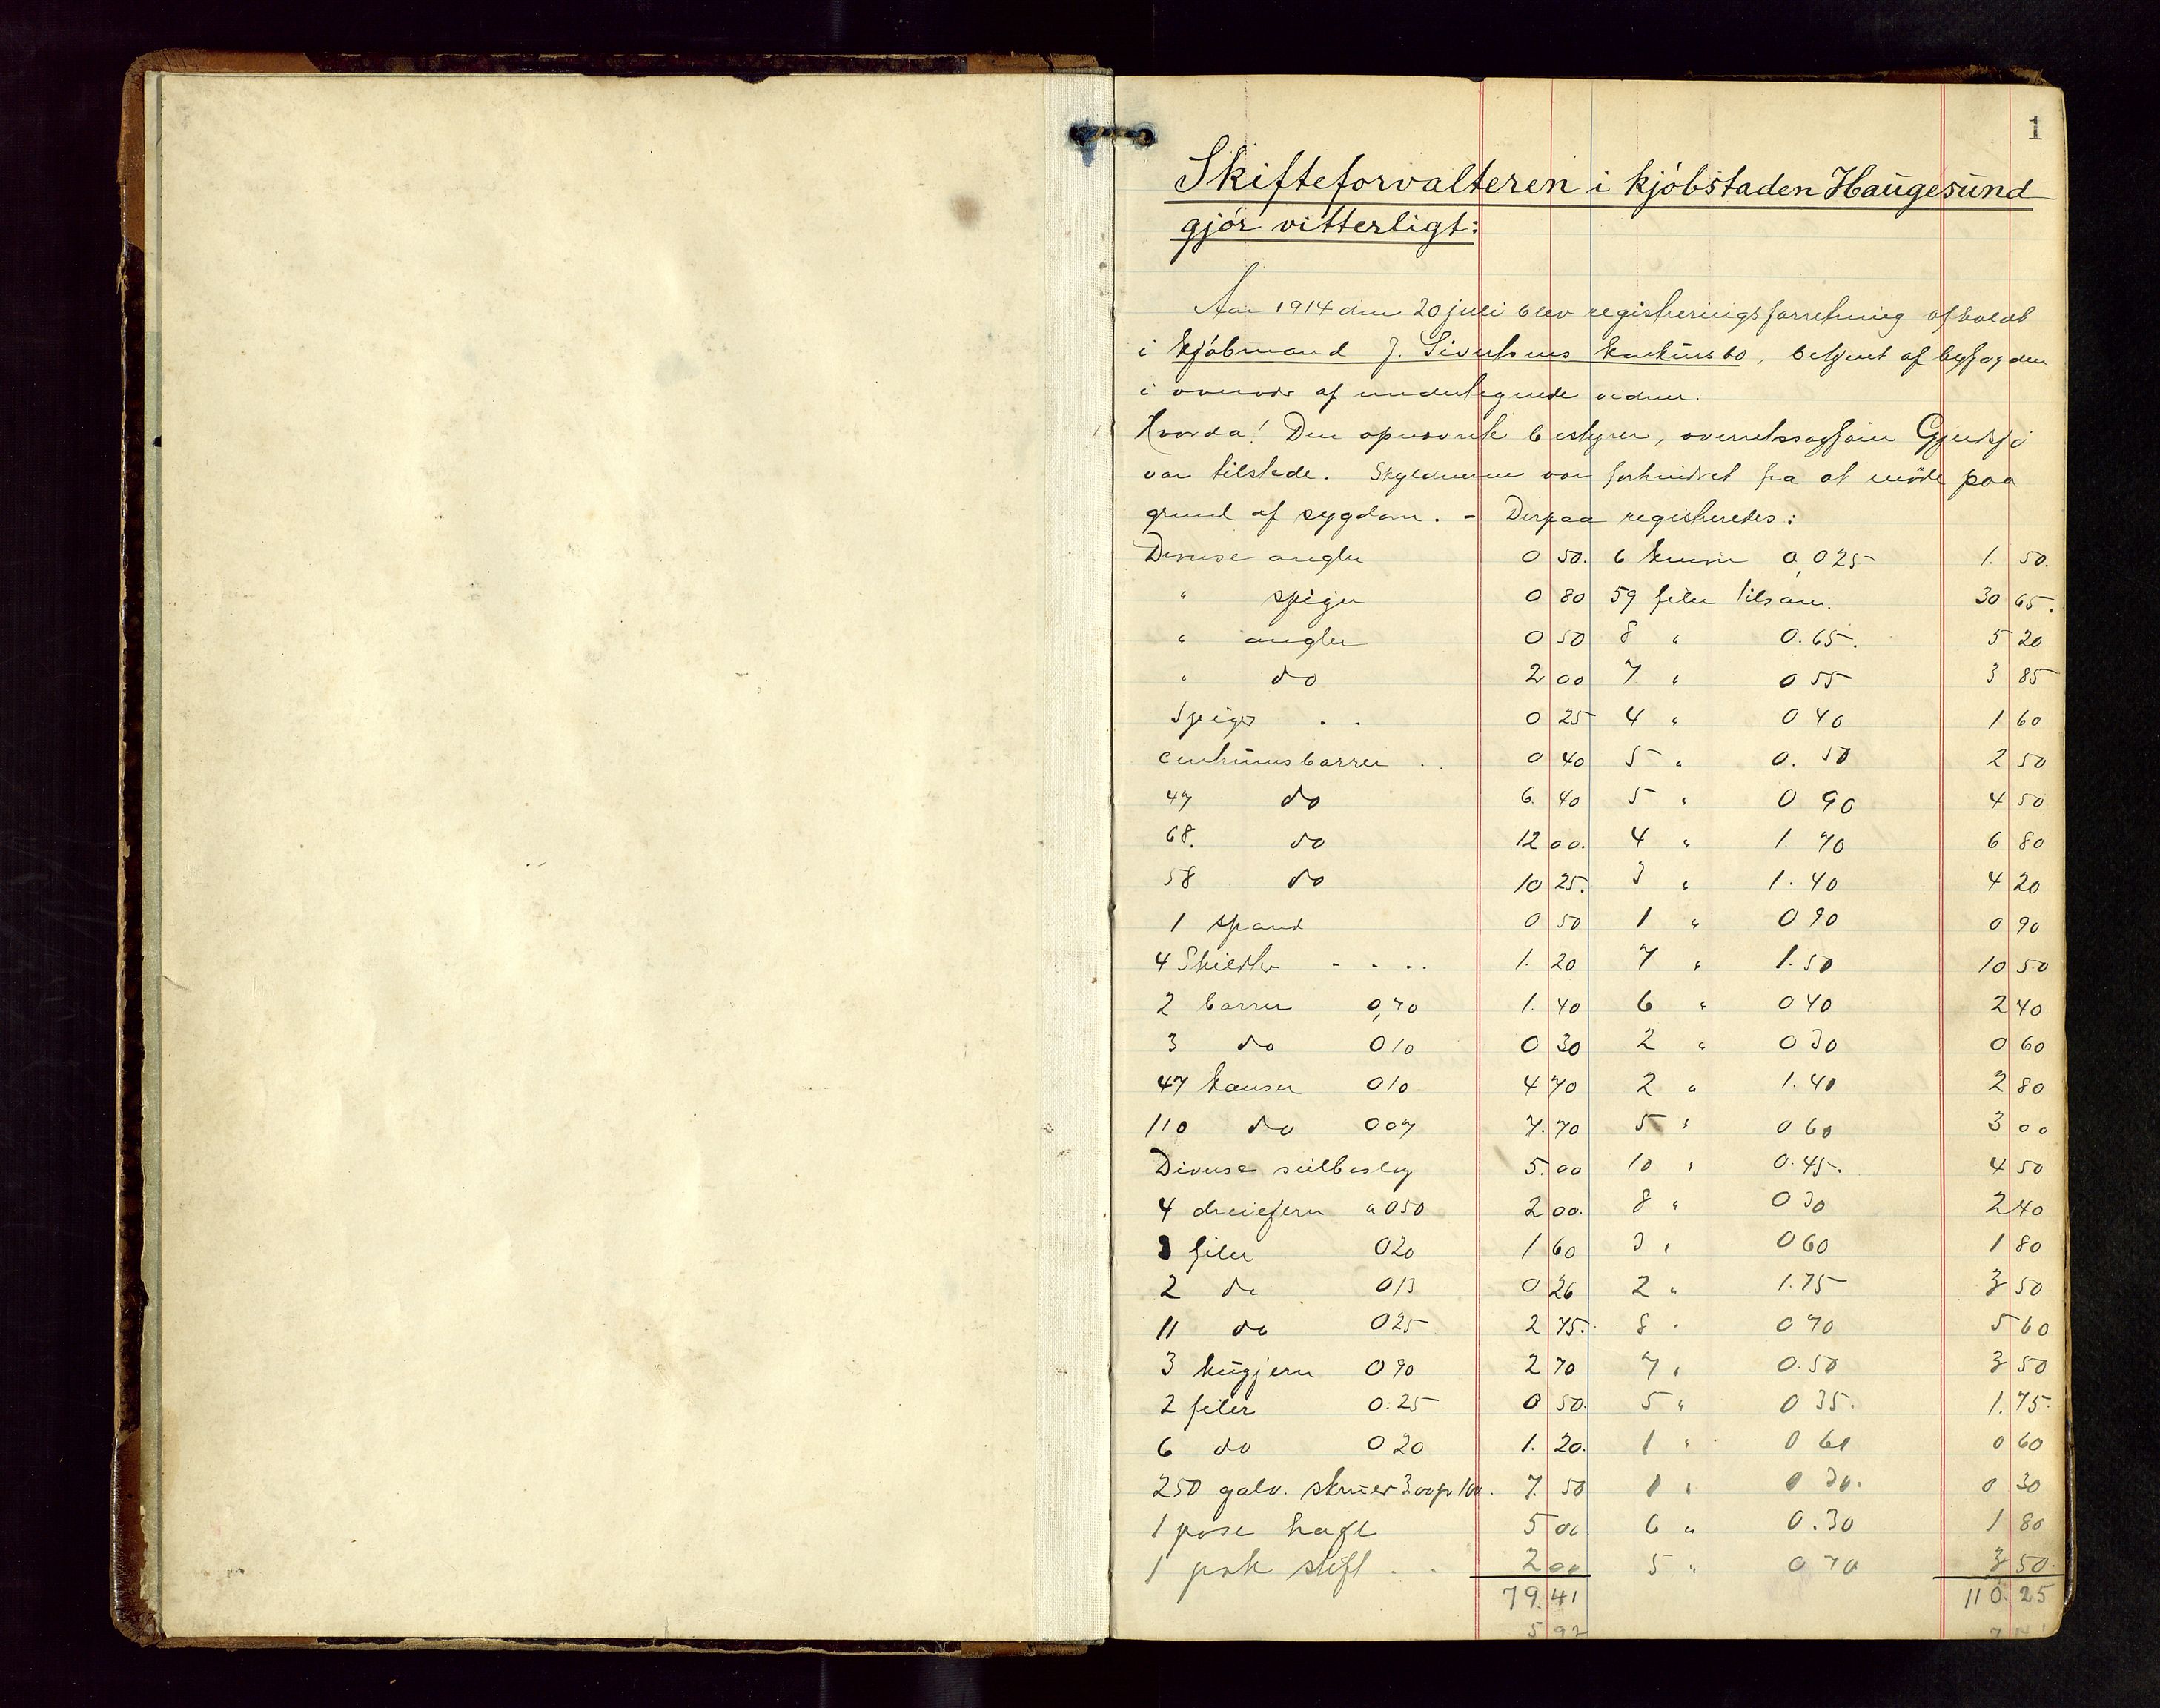 1
Skifteforvalteren i kjøbstaden Haugesund
gjør vitterligt:
Aar 1914 den 20 juli blev registreringsforretning afholdt
i kjøbmand J. Sivertsens konkursbo, betjent af byfogden
i overvær af undertegnede vidner.
Hvorda! Den opnævnte bestyrer, overretssagfører
var tilstede. Skyldneren var forhindret fra at møde paa
grund af sygdom. - Derpaa registreredes:
Diverse angler 0 50.
" spiger 0 80
" angler 0 50
" do 2 00
Spiger . . 0 25
centrumsborrer . . 0 40
47 do 6. 40
68. do 12 00.
58 do 10 25.
1 spand 0 50
4 Skildter - - . . 1. 20
2 borrer 0,70 1. 40
3 do 0 10 0 30
47 kauser 0 10 4 70
110 do 0 07 7. 70
Diverse seilbeslag 5. 00
4 dreiejern a 0 50 2 00.
8 filer 0 20 1 60
2 do 0 13 0 26
11 do 0 25 2 75.
3 hugjern 0 90 2 70
2 filer 0. 25 0 50.
6 do 0 20 1. 20.
250 galv. skruer 3.00 pr 100. 7. 50
1 pose hage 5 00
1 pak stift . . 2 00
79. 41
5 92
6 0,025 1. 50.
59 filer tilsam. 30 65.
8 " 0. 65. 5 20
7 " 0 55 3 85
4 " 0 40 1 60
5 " 0. 50 2 50
5 " 0 90 4 50
4 " 1. 70 6 80
3 " 1. 40 4 20
1 " 0 90 0 90
7 " 1. 50 10 50
6 " 0 40 2 40
2 " 0 30 0 60
2 " 1. 40 2 80
5 " 0 60 3 00
10 " 0. 45. 4 50
8 " 0 30 2 40
3 " 0 60 1 80
2 " 1. 75 3 50
8 " 0 70 5 60
7 " 0. 50 3 50
5 " 0 35. 1. 75.
1 " 0 60 0 60
1 " 0 30. 0 30
6 " 0. 30 1 80
5 " 0 70 3 50.
110. 25